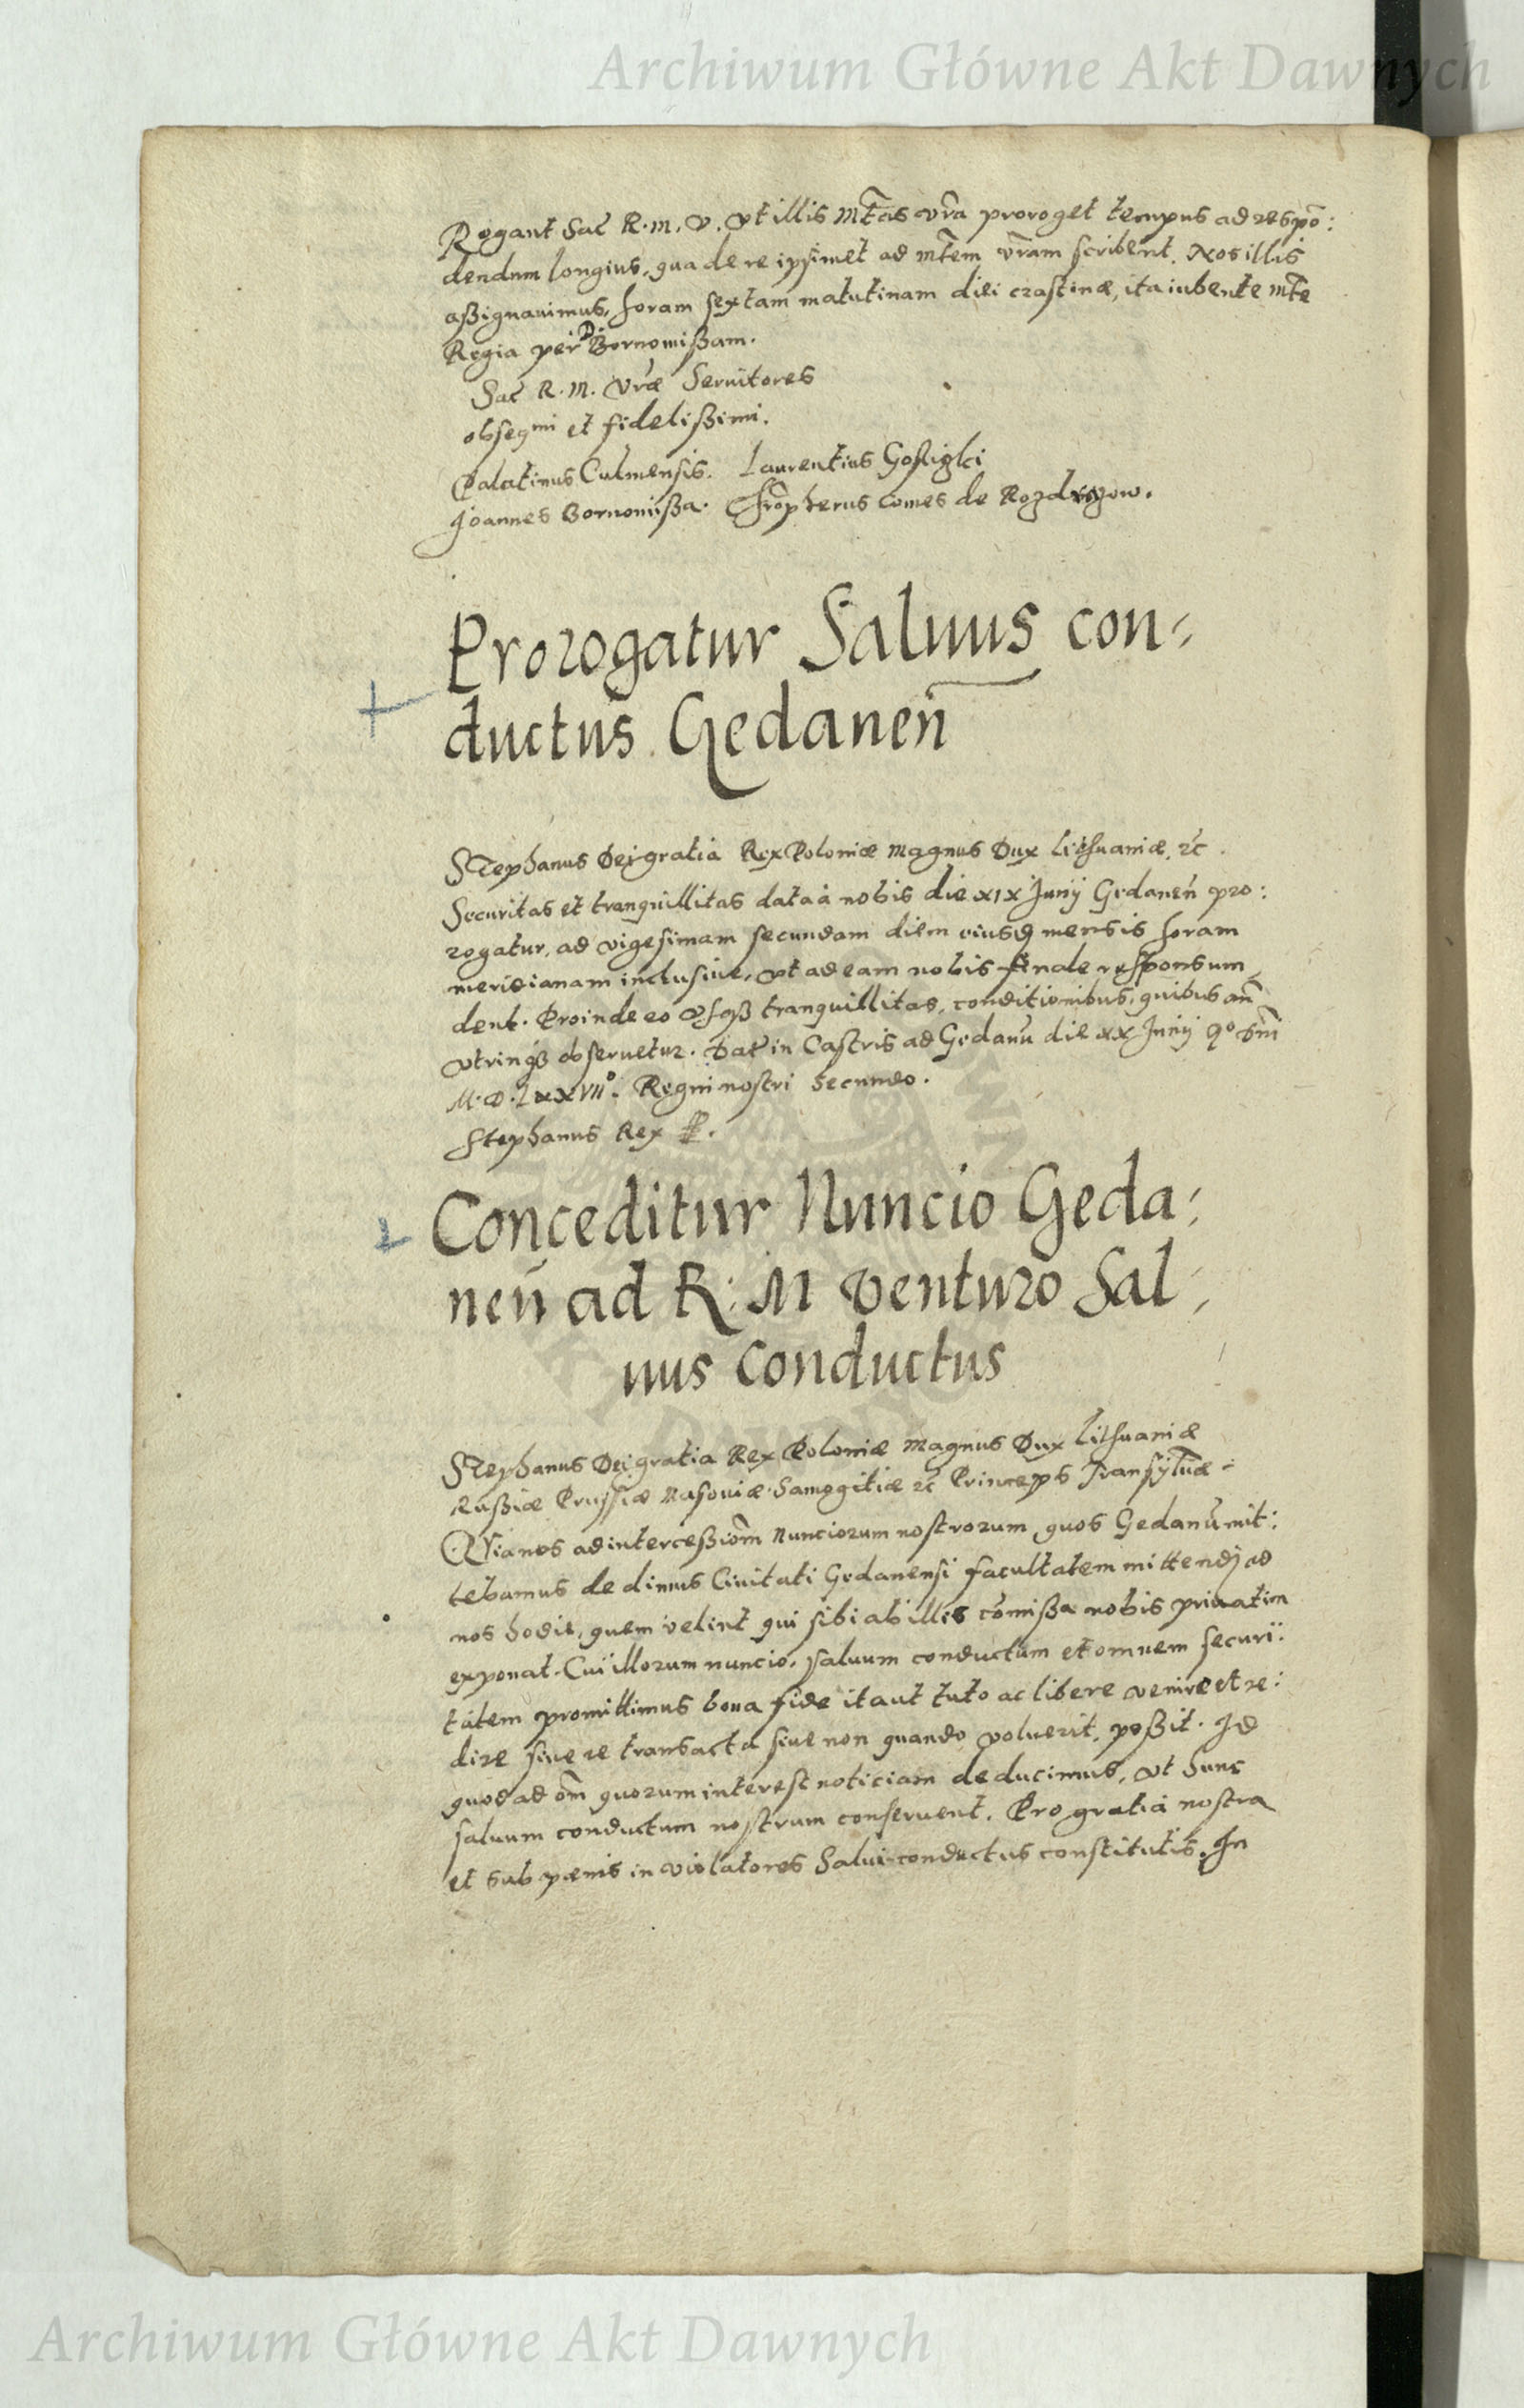 Archiwum Główne Akt Dawnych
Rogant Sac̃ R. M. V. vt illis Mt̃as vr̃a proroget tempus ad respõ:
dendum longius, qua de re ipsimet ad Mt̃em vr̃am scribent. Nos illis
aßignauimus, horam sextam matutinam diei crastinæ, ita iubente Mt̃e
Regia per D. Bornomißam.
Sac̃ R. M. Vr̃æ Seruitores
obseqmi et fidelißimi.
Palatinus Culmensis. Laurentius Goslizki
Joannes Bornomißa. Chr̃opherus Comes de Rozdrazow.
Prorogatur Saluus con-
ductus Gedaneñ
Stephanus Dei gratia Rex Poloniæ Magnus Dux Lithuaniæ, ꝛc̃.
Securitas et tranquillitas data à nobis die XIX Junij Gedaneñ pro:
rogatur, ad vigesimam secundam diem eiusq mensis horam
meridianam inclusiue, vt ad eam nobis finale responsum
dent. Proinde eo vsqß tranquillitas, conditionibus, quibus añ
vtrinqß obseruetur. Dat̃ in Castris ad Gedanũ die XX Junij Ao Dñi
M. D. LXXVIIo. Regni nostri Secundo.
Stephanus Rex
Conceditur Nuncio Geda:
neñ ad R: M venturo Sal-
uus Conductus
Stephanus Dei gratia Rex Poloniæ Magnus Dux Lithuaniæ
Rußiæ Prussiæ Masouiæ Samogitiæ ꝛc̃ Princeps Transyluã æ
Quia nos ad interceßiom̃ Nunciorum nostrorum, quos Gedanũ mit:
tebamus dedimus Ciuitati Gedanensi facultatem mittendj ad
nos hodie, quem velint qui sibi ab illis com̃ißa nobis priuatim
exponat. Cui illorum nuncio, saluum conductum et omnem securi:
tatem promittimus bona fide ita ut tuto ac libere venire et re:
dire siue re transacta siue non quando voluerit, poßit. Id
quod ad om̃ quorum interest noticiam deducimus, vt hunc
saluum conductum nostrum conseruent. Pro gratia nostra
et sub pænis in violatores Salui conductus constitutis. In
Archiwum Główne Akt Dawnych